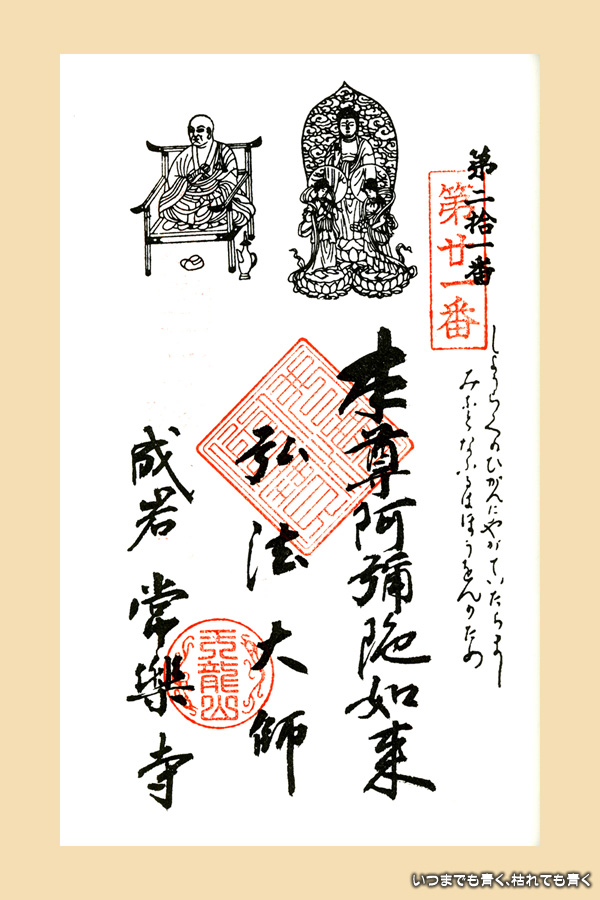 第二拾一番
第廿一番
しようらくのひがんにやがていたらまし
みふとなふるはほうをんのため
本尊阿彌陀如来
弘法大師
成岩 常樂寺
天龍山
いつまでも青く、枯れても青く